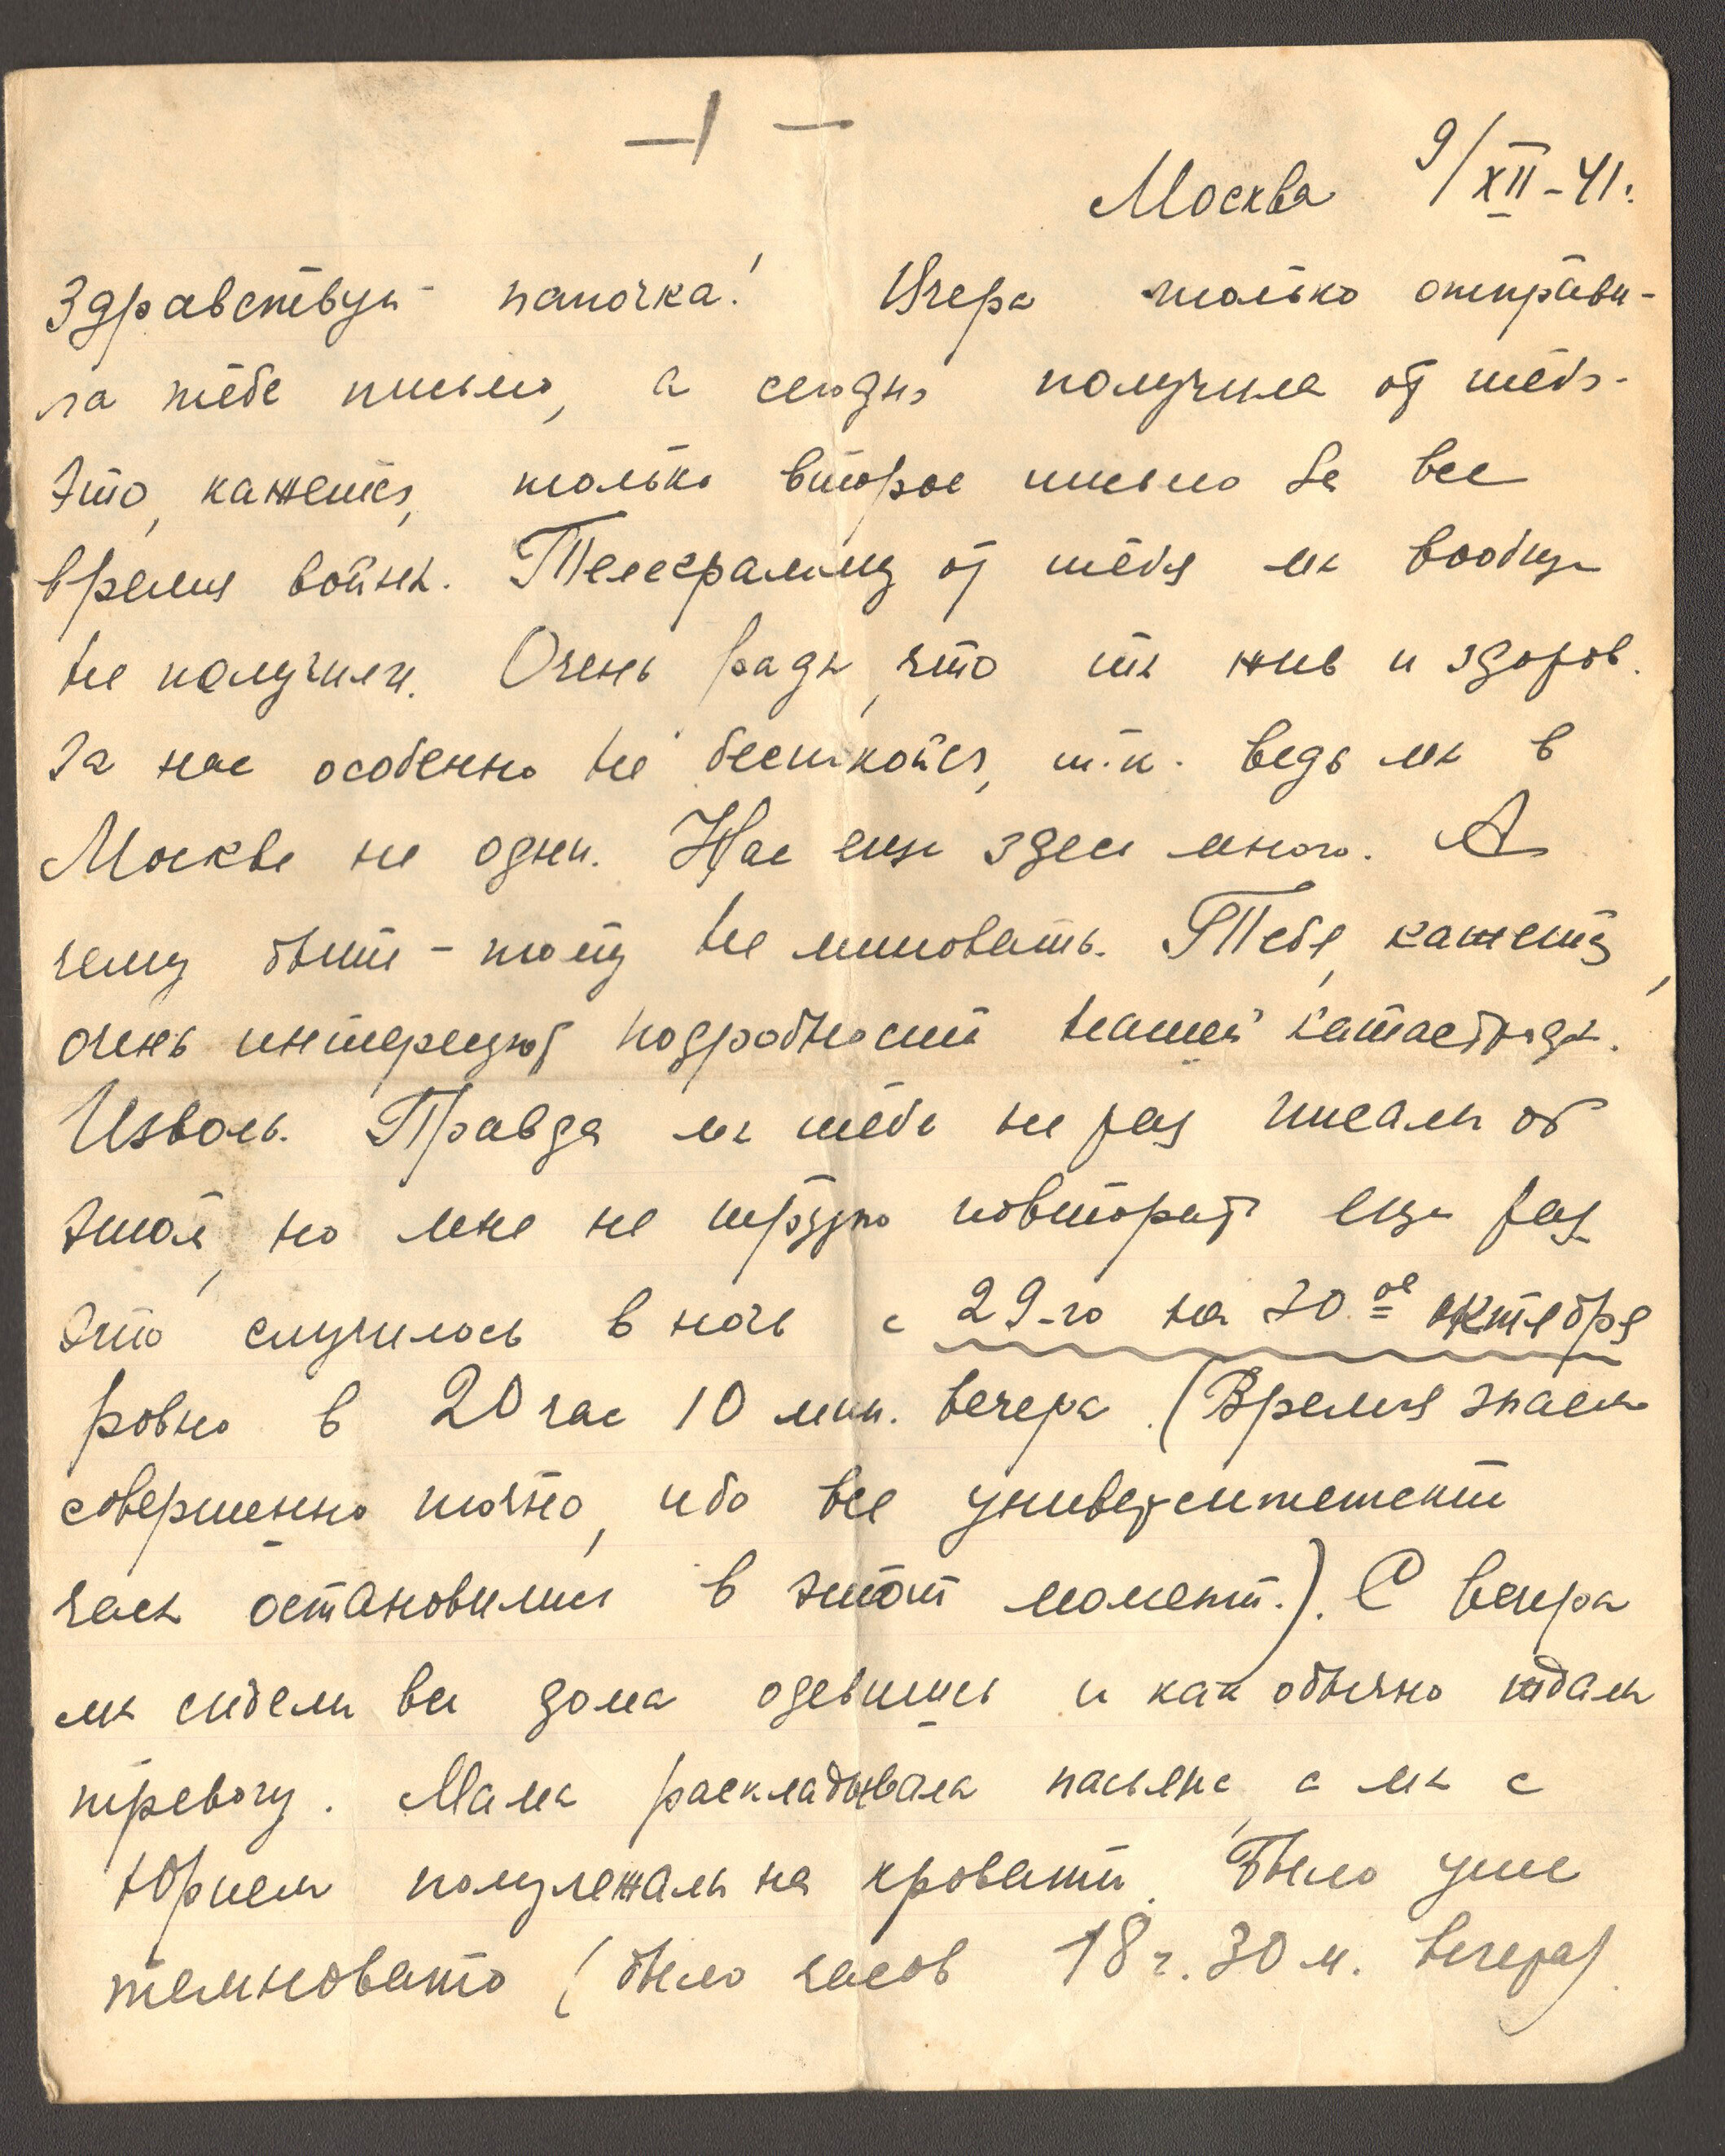 — 1 —
Москва 9/XII-41г.
Здравствуй папочка! Вчера только отправи-
ла тебе письмо, а сегодня получила от тебя.
Это, кажется, только второе письмо за все
время войны. Телеграмму от тебя мы вообще
не получили. Очень рады, что ты жив и здоров.
За нас особенно не беспокойся, т.к. ведь мы в
Москве не одни. Нас еще здесь много. А
чему быть - тому не миновать. Тебя, кажется,
очень интересуют подробности нашей катастрофы.
Изволь. Правда мы тебе не раз писали об
этом, но мне не трудно повторить еще раз
Это случилось в ночь с 29-го на 30-ое октября
ровно в 20 час 10 мин. вечера. (Время знаем
совершенно точно, ибо все университетские
часы остановились в этот момент.). С вечера
мы сидели все дома одевшись и как обычно ждали
тревогу. Мама раскладывала пасьянс, а мы с
Юрием полулежали на кровати. Было уже
темновато (было часов 18 ч. 30 м. вечера)